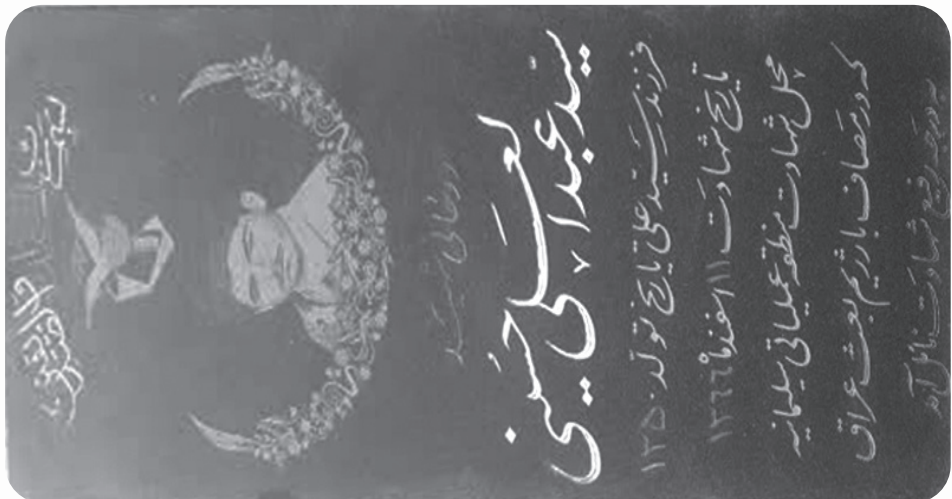 سید عبدالعلی حسینی
فرزند سید علی تاریخ تولد ۱۳۵۰
تاریخ شهادت اسفندماه ۱۳۶۶
محل شهادت منطقه عملیاتی سلیمانیه
که در مصاف با رژیم بعث عراق
به درجه رفیع شهادت نائل آمد